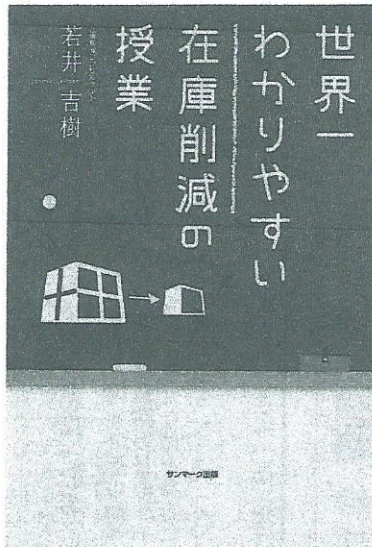 世界一
わかりやすい
在庫削減の
授業
若井吉樹
サンマーク出版